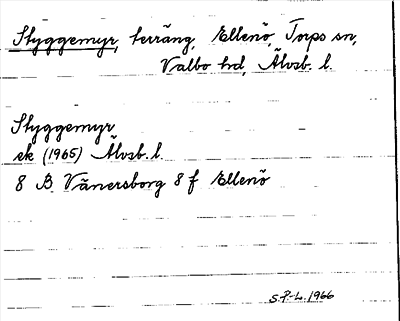 Styggemyr, terräng, Ellenö, Torps sn,
Valbo hd, Älvsb. l.
Styggemyr
ek (1965) Älvsb. l.
8 B Vänersborg 8 f Ellenö
S.P-L. 1966